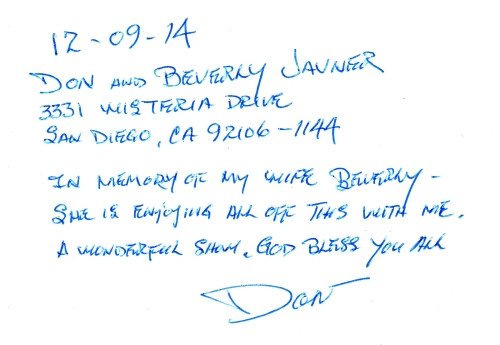 12-09-14
DON AND BEVERLY JAVNER
3331 WISTERIA DRIVE
SAN DIEGO, CA 92106-1144
IN MEMORY OF MY WIFE BEVERLY -
SHE IS ENJOYING ALL OFF THIS WITH ME.
A WONDERFUL SHOW. GOD BLESS YOU ALL
DON